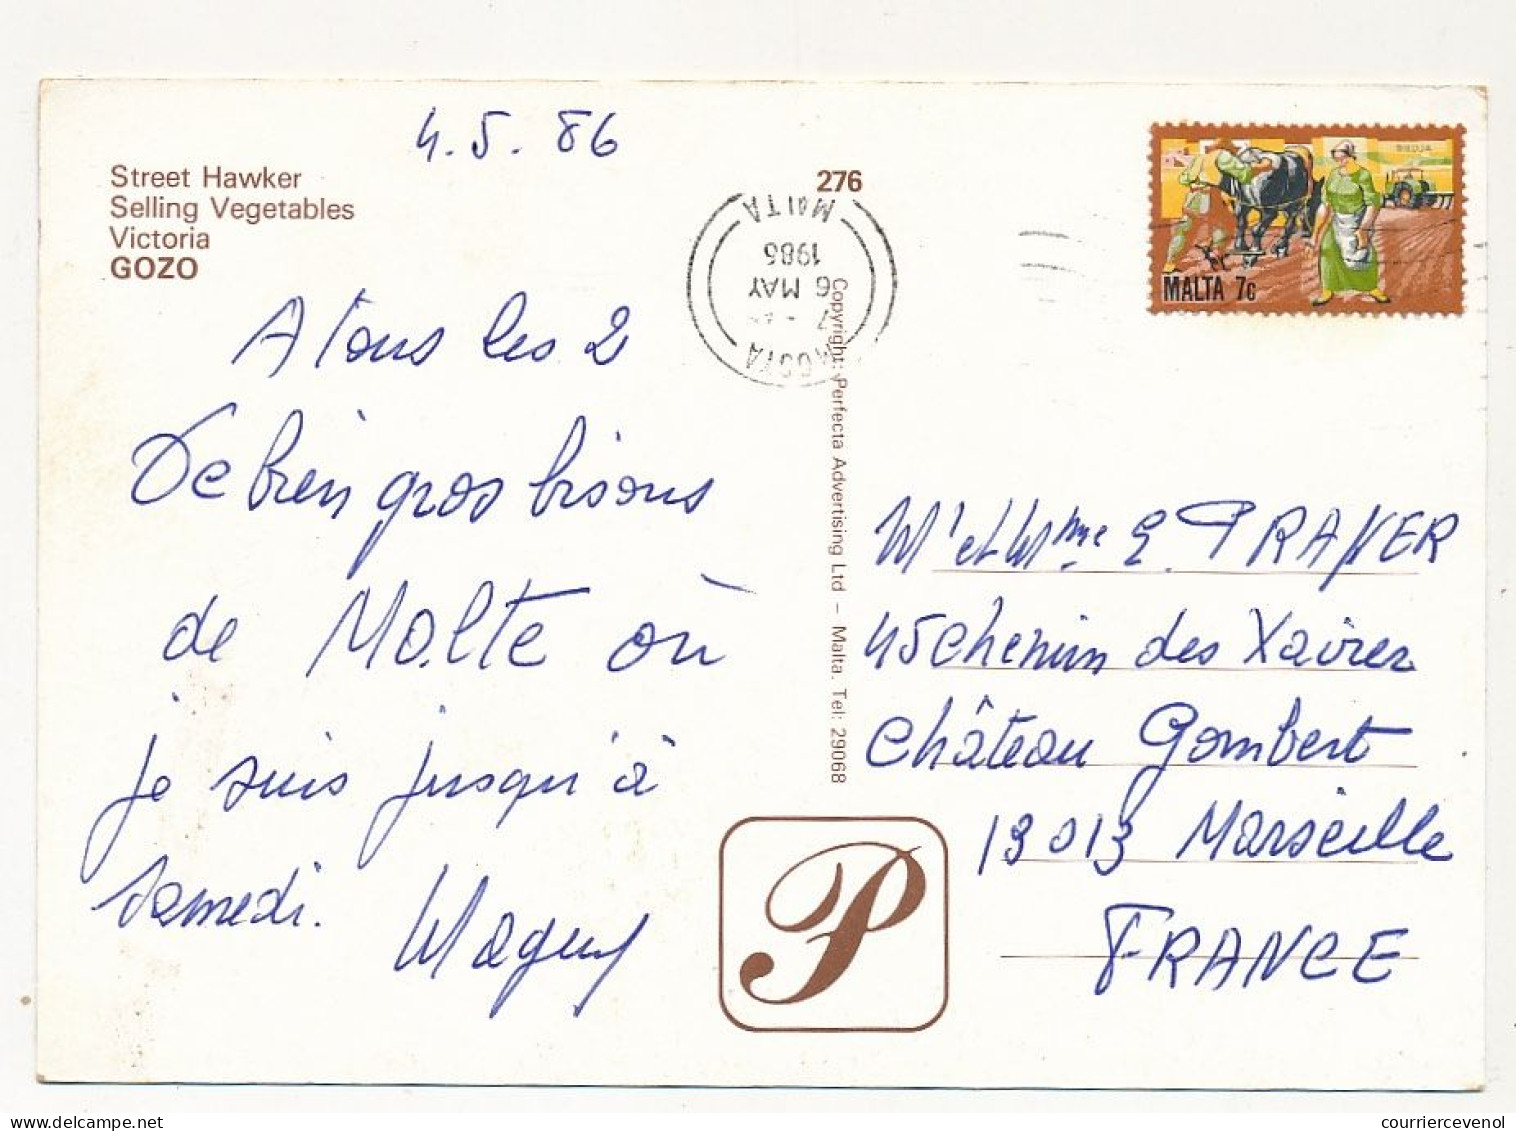 4.5.86
Street Hawker
Selling Vegetables
Victoria
GOZO
276
MALTA
1986
6 MAY
7
MOSTA
BIEDJA
MALTA 7c
A tous les 2
De bien gros bisous
de Malte où
je suis jusqu'à
samedi.
Maguy
Copyright: Perfecta Advertising Ltd – Malta. Tel: 29068
P
Mr et Mme E. PRAYER
45 chemin des Xaviez
Château Gombert
13013 Marseille
FRANCE
courriercevenol